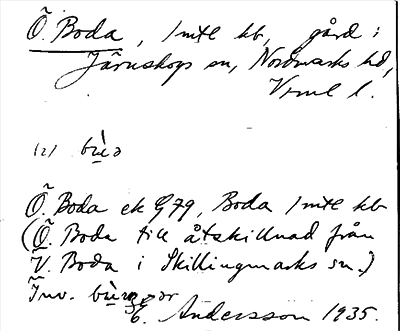 Õ. Boda, 1 mtl kb, gård i
Järnskogs sn, Nordmarks hd,
Vrml l.
(2) bùə
Õ. Boda ek G79, Boda 1 mtl kb
(Õ. Boda till åtskillnad från
Ṽ. Boda i Skillingmarks sn.)
Inv.
E. Andersson 1935.